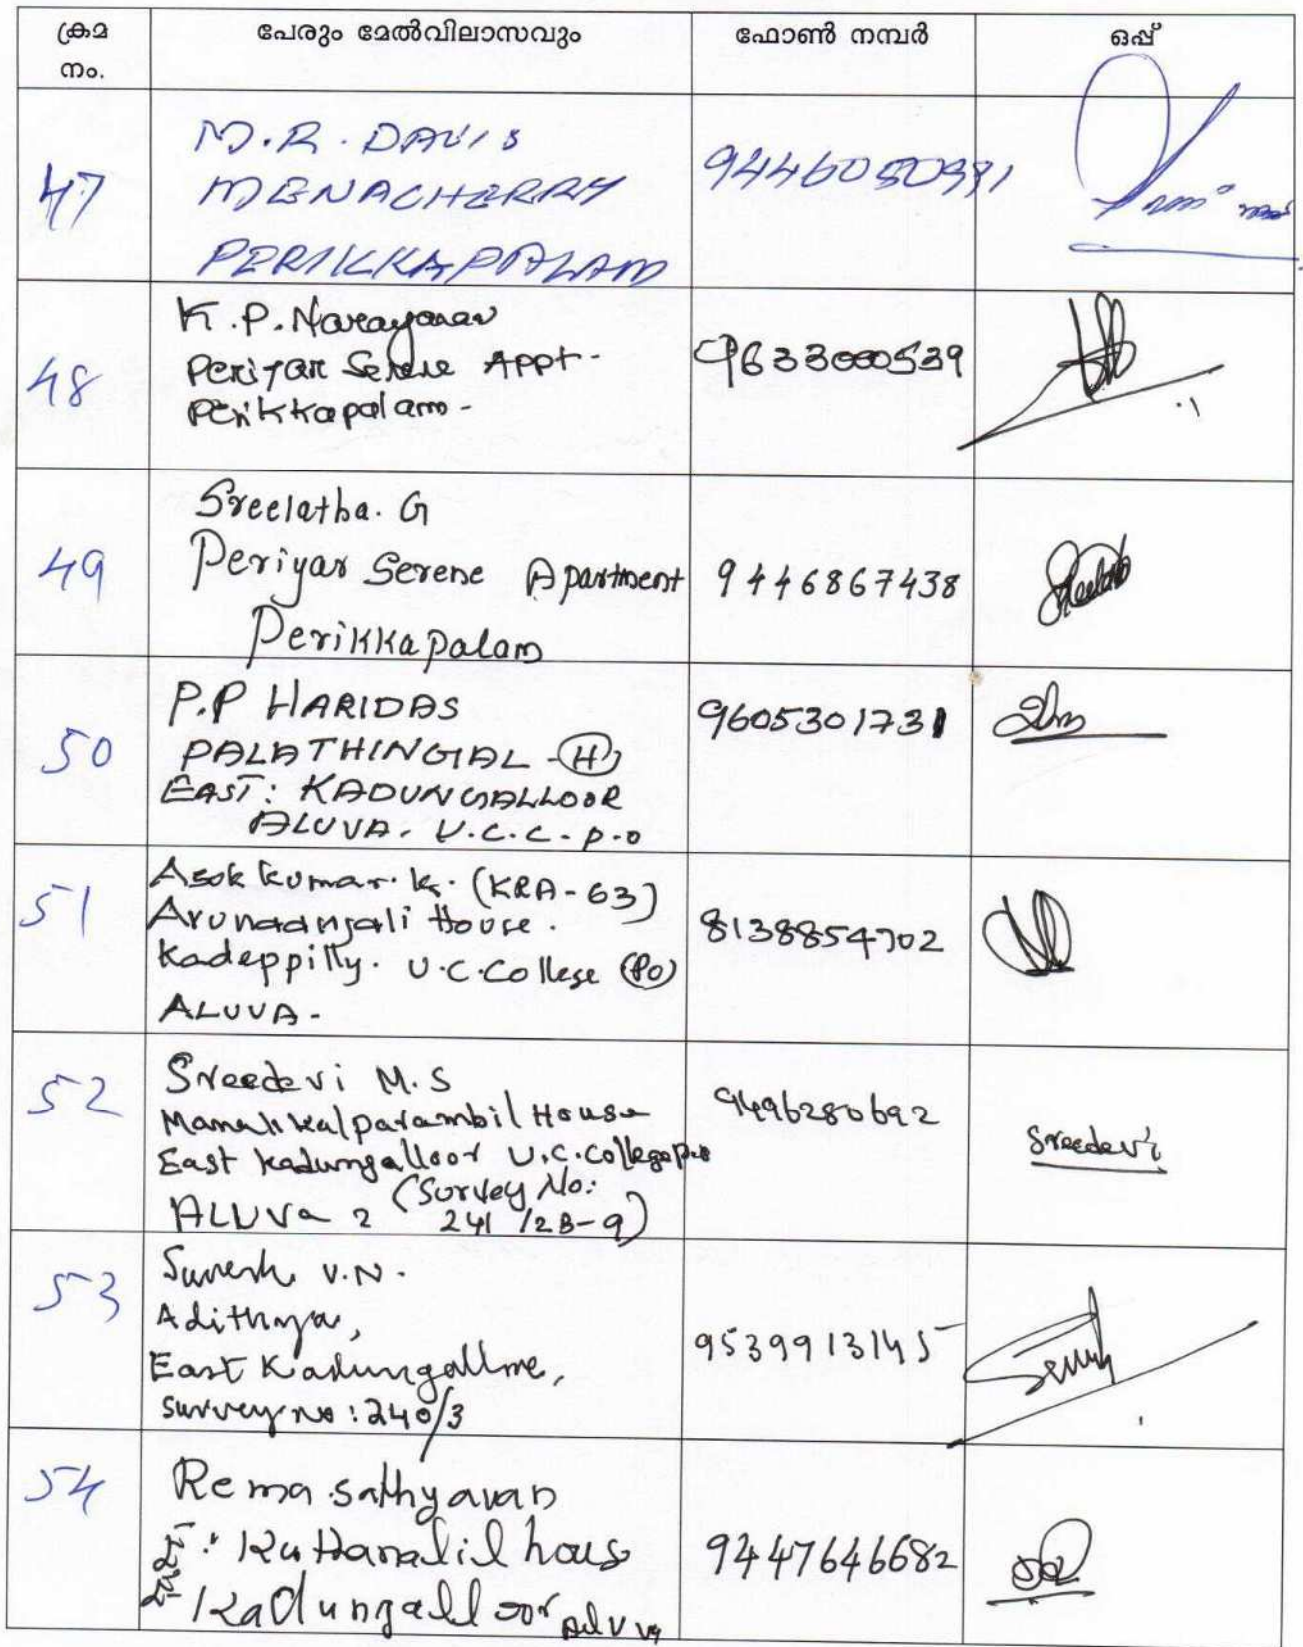 ക്രമ നം. പേരും മേൽവിലാസവും ഫോൺ നമ്പർ ഒപ്പ്
47
M.R. DAVIS
MENACHERRY
PERIKKAPPALAM
9446050981
48
K.P. Narayanan
Periyar Serene Appt-
Perikkapalam-
9633000539
49
Sreelatha. G
Periyar Serene Apartment
Perikkapalam
9446867438
50
P.P HARIDAS
PALATHINGAL-(H)
EAST: KADUNGALLOOR
ALUVA. U.C.C-P.O
9605301731
51
Asok kumar. k. (KRA-63)
House.
Kadeppilly. U.C.College (PO)
ALUVA-
8138854702
52
Sreedevi M.S
House
East Kadungalloor U.C.College p.o
ALUVA 2 (Survey No: 241/2B-9)
9496280692
Sreedevi
53
Suresh V.N.
Adithya,
East Kadungalloore,
Survey no: 240/3
9539913145
54
Rema sathyavan
Kuttanalil hous
Kadungalloor Aluva
9447646682